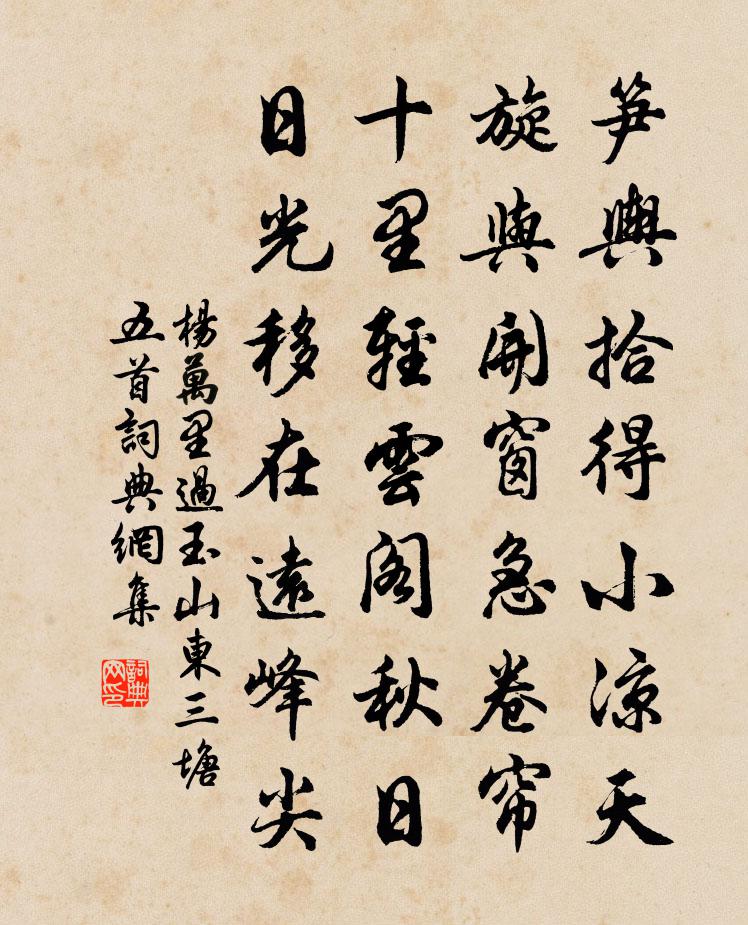 笋輿拾得小凉天
旋與開窗急卷帘
十里輕雲閣秋日
日光移在遠峰尖
楊萬里過玉山東三塘
五首詞典網集
詞典
网印